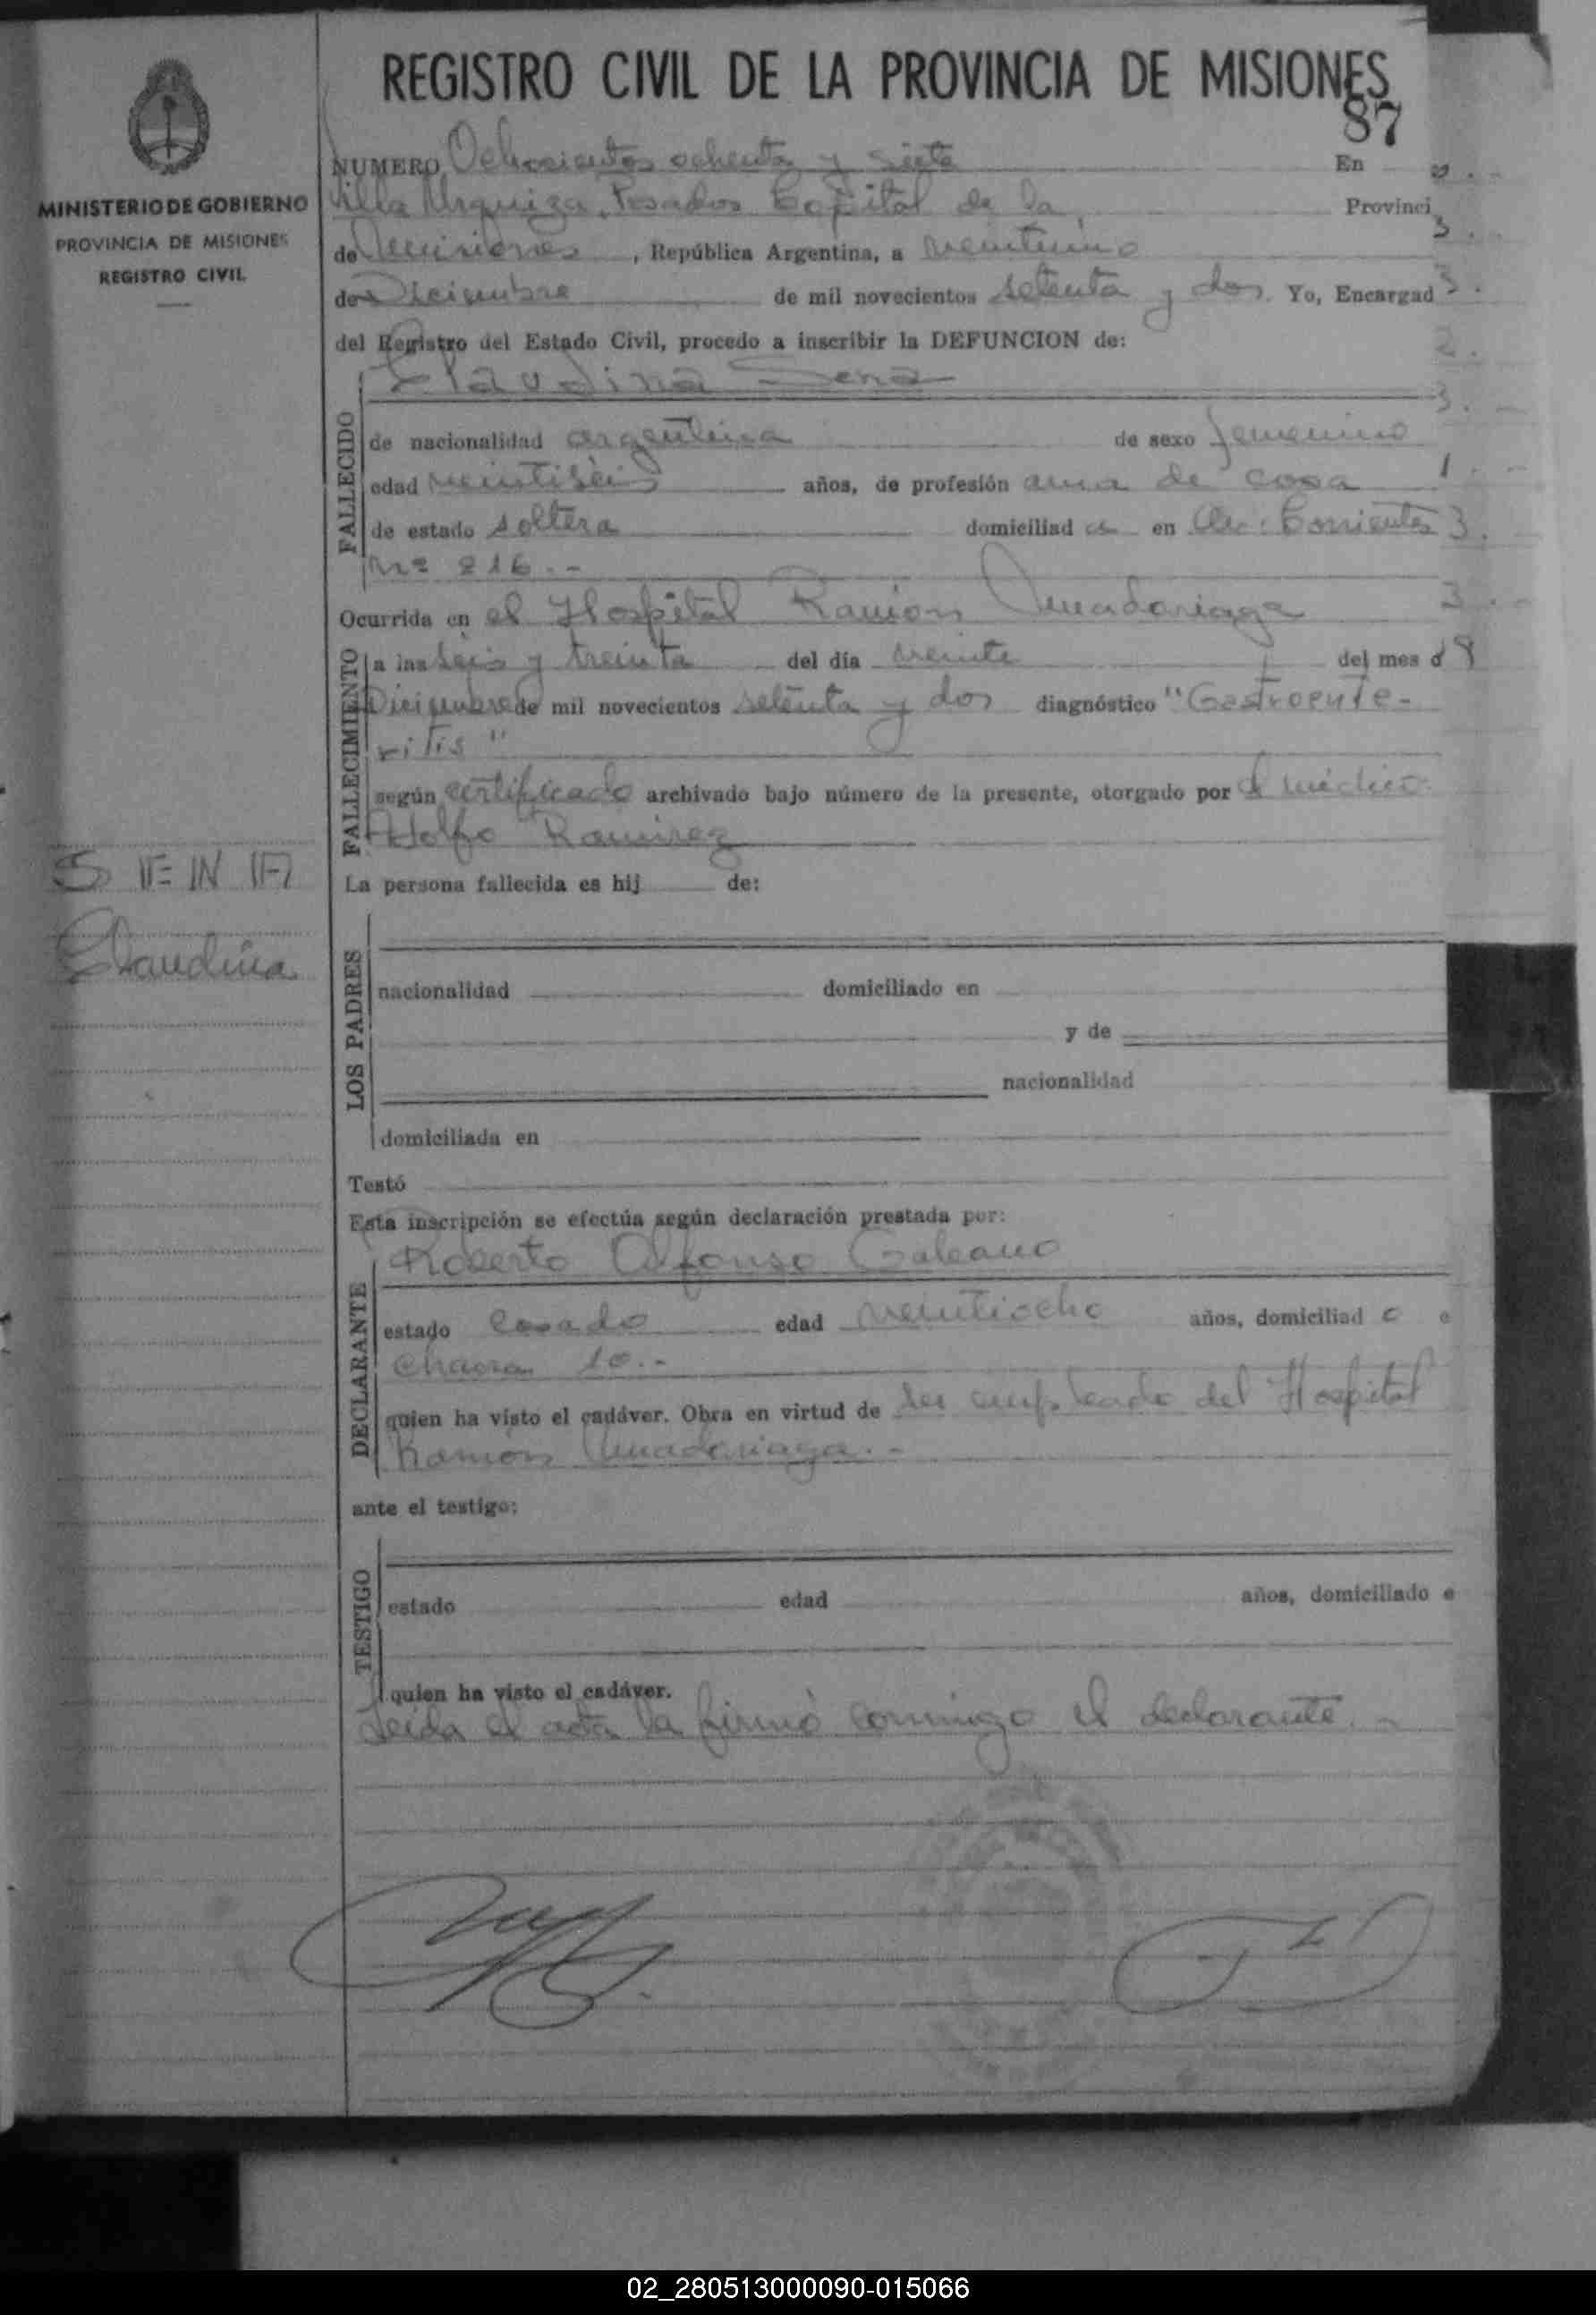 REGISTRO CIVIL DE LA PROVINCIA DE MISIONES
87
MINISTERIO DE GOBIERNO
PROVINCIA DE MISIONES
REGISTRO CIVIL
NUMERO Ochocientos ochenta y siete En
Villa Urquiza, Posadas Capital de la Provinci
de Misiones, República Argentina, a veintiuno
de Diciembre de mil novecientos setenta y dos. Yo, Encargad
del Registro del Estado Civil, procedo a inscribir la DEFUNCION de:
Claudina Sena
FALLECIDO
de nacionalidad argentina de sexo femenino
edad veintiséis años, de profesión ama de casa
de estado soltera domiciliad a en Av. Corrientes
Nº 216.-
Ocurrida en el Hospital Ramón Madariaga
FALLECIMIENTO
a las seis y treinta del día veinte del mes d
Diciembre de mil novecientos setenta y dos diagnóstico "Gastroente-
ritis"
según certificado archivado bajo número de la presente, otorgado por el médico
Adolfo Ramirez
SENA
Claudina
La persona fallecida es hij de:
LOS PADRES
nacionalidad domiciliado en
y de
nacionalidad
domiciliada en
Testó
Esta inscripción se efectúa según declaración prestada por:
Roberto Alfonso Galeano
DECLARANTE
estado casado edad veintiocho años, domiciliad o e
chacra 10.-
quien ha visto el cadáver. Obra en virtud de ser empleado del Hospital
Ramón Madariaga.-
ante el testigo:
TESTIGO
estado edad años, domiciliado e
quien ha visto el cadáver.
Leida el acta la firmó conmigo el declarante.-
02_280513000090-015066